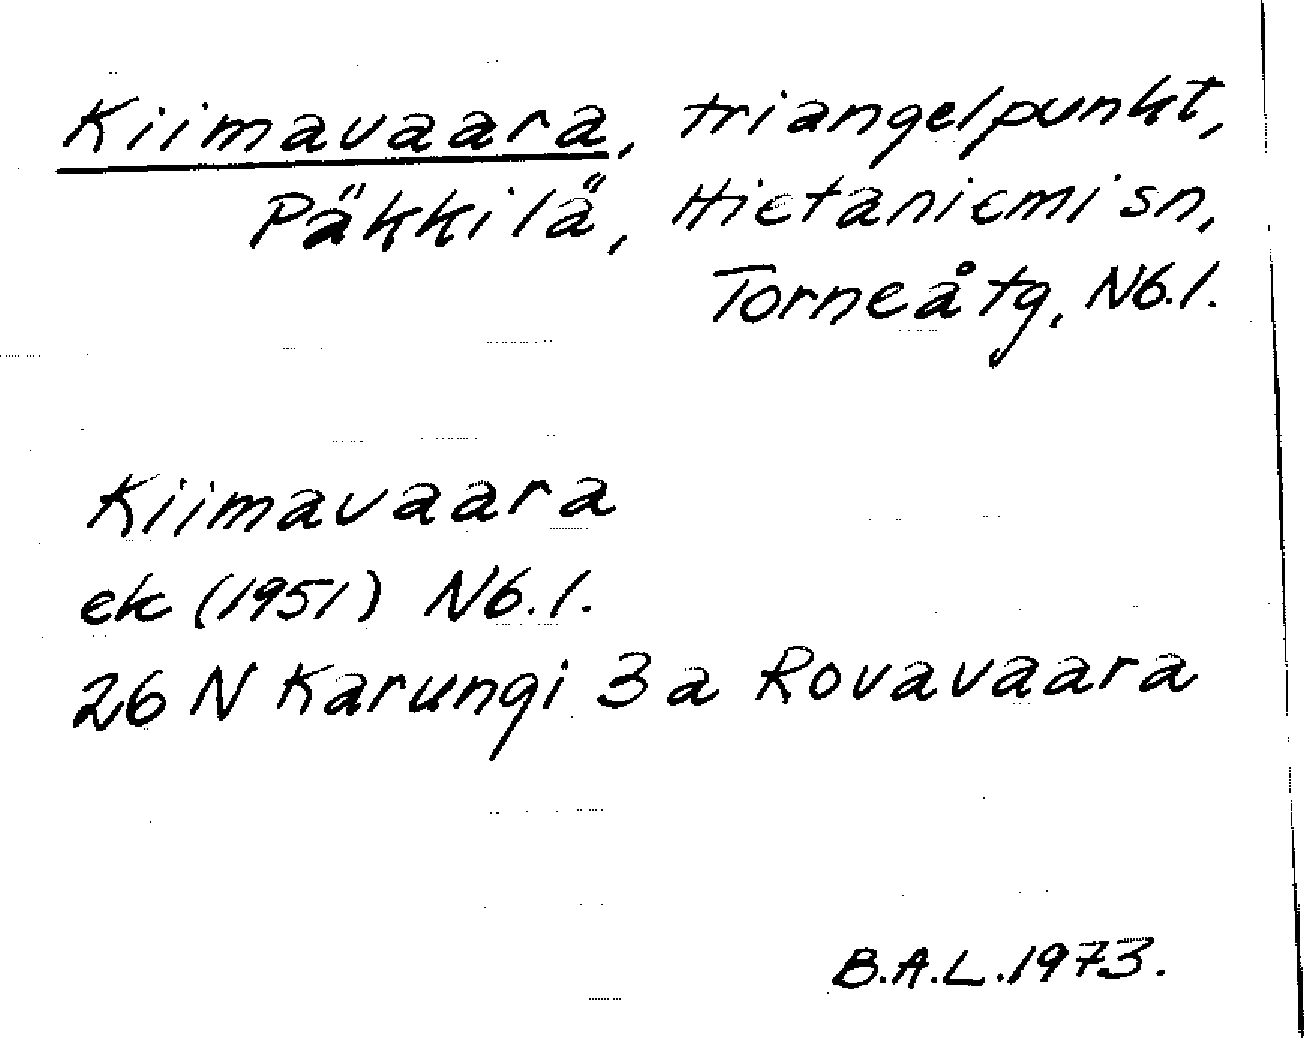 Kiimavaara, triangelpunkt,
Päkkilä, Hietaniemi sn,
Torneå tg, Nb.l.
Kiimavaara
ek (1951) Nb.l.
26 N Karungi 3 a Rovavaara
B.A.L. 1973.